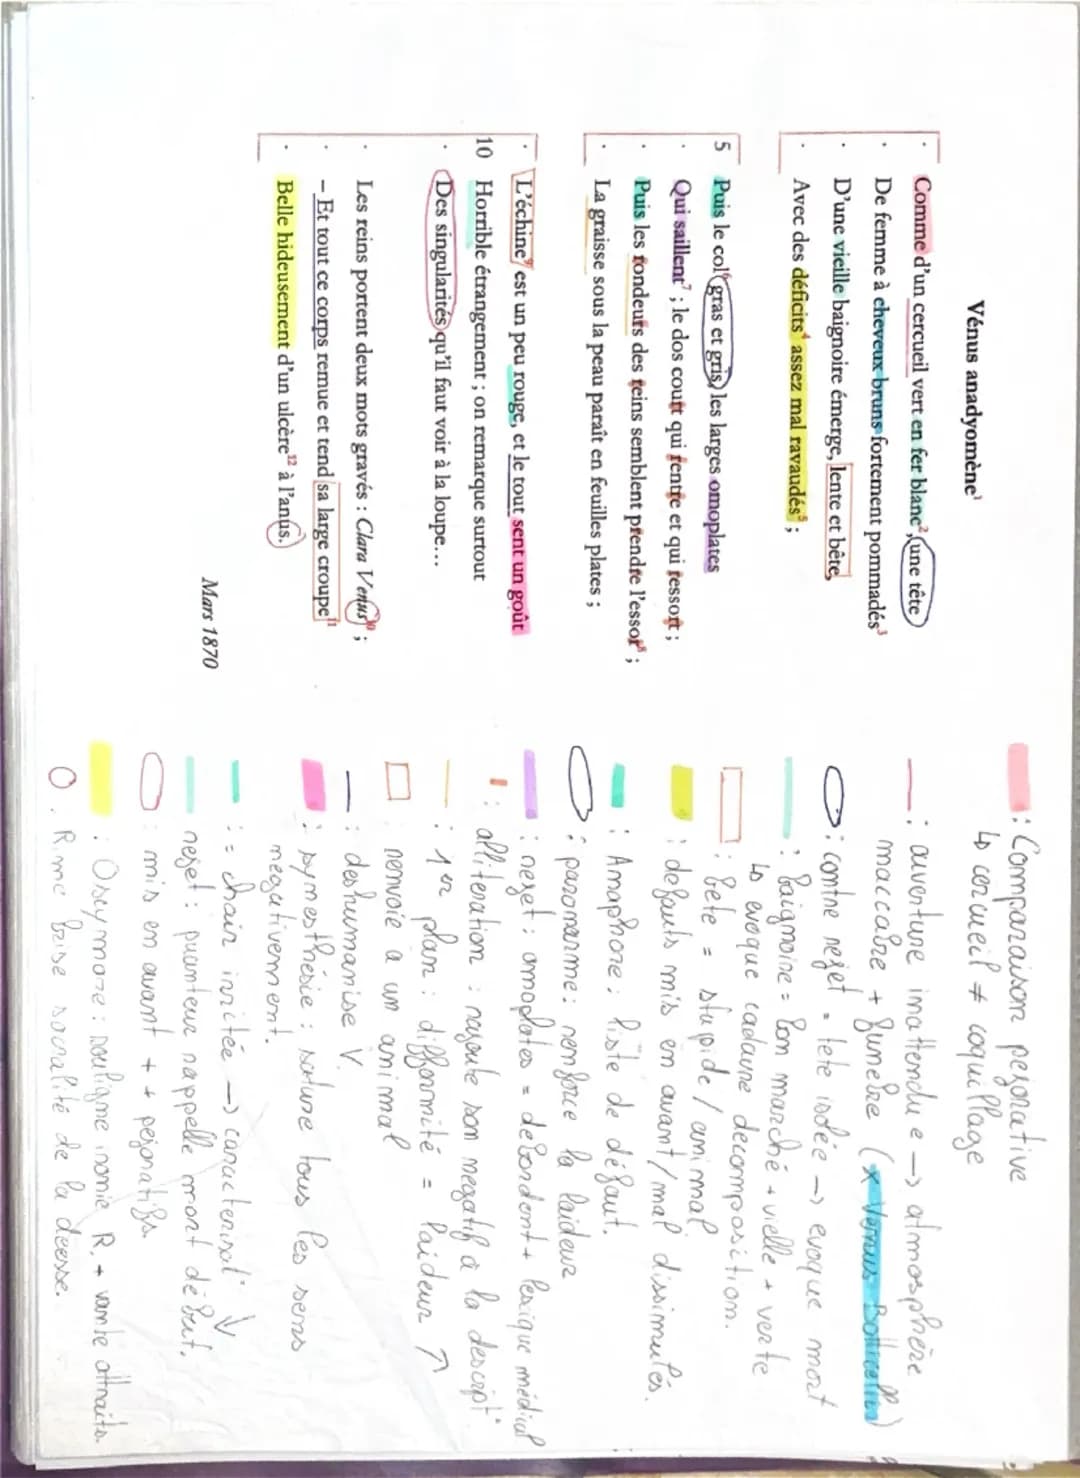 Vénus anadyomène¹
Comme d'un cercueil vert en fer blanc², une tête
De femme à cheveux bruns fortement pommadés³
D'une vieille baignoire émerge, lente et bête,
Avec des déficits⁴ assez mal ravaudés⁵ ;
5 Puis le col⁶ gras et gris, les larges omoplates
Qui saillent⁷ ; le dos court qui rentre et qui ressort ;
Puis les rondeurs des reins semblent prendre l'essor⁸ ;
La graisse sous la peau paraît en feuilles plates ;
L'échine⁹ est un peu rouge, et le tout sent un goût
10 Horrible étrangement ; on remarque surtout
Des singularités qu'il faut voir à la loupe...
Les reins portent deux mots gravés : Clara Venus¹⁰ ;
– Et tout ce corps remue et tend sa large croupe¹¹
Belle hideusement d'un ulcère¹² à l'anus.
Mars 1870
: Comparaison pejorative
↳ cercueil ≠ coquillage
: ouverture inattendue → atmosphère
maccabre + funebre (x Venus Botticelli)
: contre rejet = tete isolée → evoque mort
: Baignoire = bon marché + vielle + verte
↳ evoque cadavre decomposition.
: Bete = stupide / animal
: defauts mis en avant / mal dissimulés.
: Anaphore : liste de défaut.
: paronanme : renforce la laideur
: rejet : omoplates = debordent + lexique médical
: alliteration : rajoute son negatif a la descript°
: 1er plan : difformité = laideur ↗
renvoie a un animal
: deshumanise V.
: synesthésie : sature tous les sens
négativement.
: = chair irritée → caracterisat° ↓
rejet : puanteur rappelle mort debut.
: mis en avant + + péjoratifs.
: Oxymore : souligne ironie R. + vante attraits.
. Rime brise sacralité de la déesse.